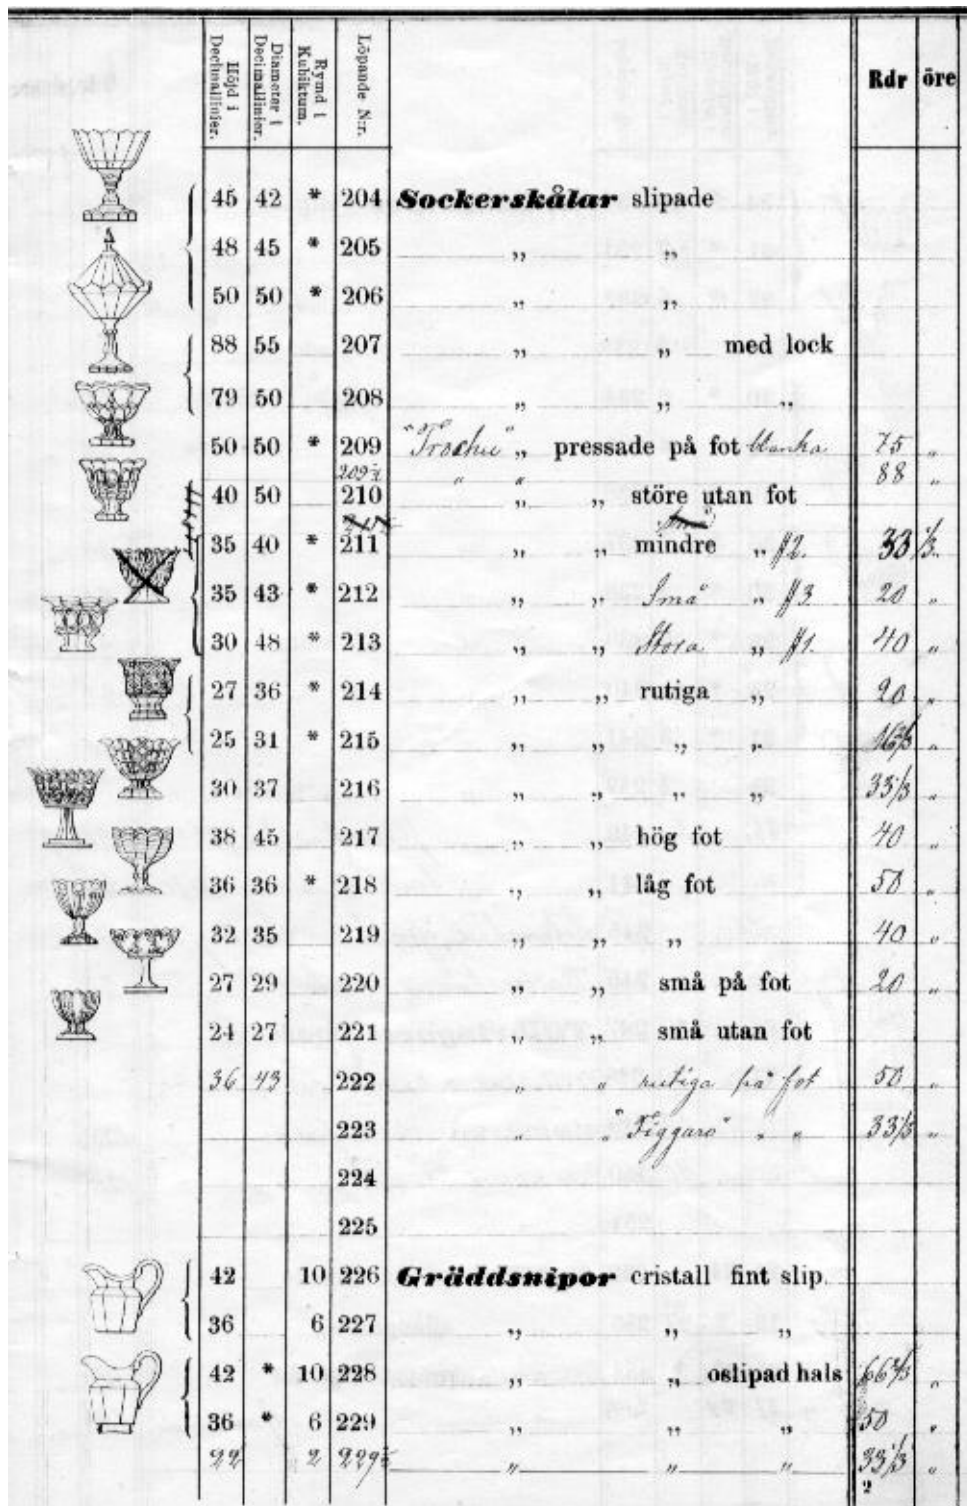 Höjd i Decimallinier. Diameter i Decimallinier. Rymd i Kubiktum. Löpande Nr. Rdr öre
45 42 * 204 Sockerskålar slipade
48 45 * 205 „ „
50 50 * 206 „ „
88 55 207 „ „ med lock
79 50 208 „ „ „
50 50 * 209 "Trochu" „ pressade på fot blanka 75 „
209½ „ „ 88 „
40 50 210 „ „ störe utan fot
35 40 * 211 „ „ mindre „ #2. 33 ⅓ „
35 43 * 212 „ „ Små „ #3 20 „
30 48 * 213 „ „ Stora „ #1. 40 „
27 36 * 214 „ „ rutiga „ 20 „
25 31 * 215 „ „ „ „ 16⅔ „
30 37 216 „ „ „ „ 33⅓ „
38 45 217 „ „ hög fot 40 „
36 36 * 218 „ „ låg fot 50 „
32 35 219 „ „ „ 40 „
27 29 220 „ „ små på fot 20 „
24 27 221 „ „ små utan fot
36 43 222 „ „ rutiga på fot 50 „
223 „ "Figgaro" „ „ 33⅓ „
224
225
42 10 226 Gräddsnipor cristall fint slip.
36 6 227 „ „ „
42 * 10 228 „ „ oslipad hals 66⅔ „
36 * 6 229 „ „ „ 50 „
22 „ 2 229½ „ „ „ 33⅓ „
2